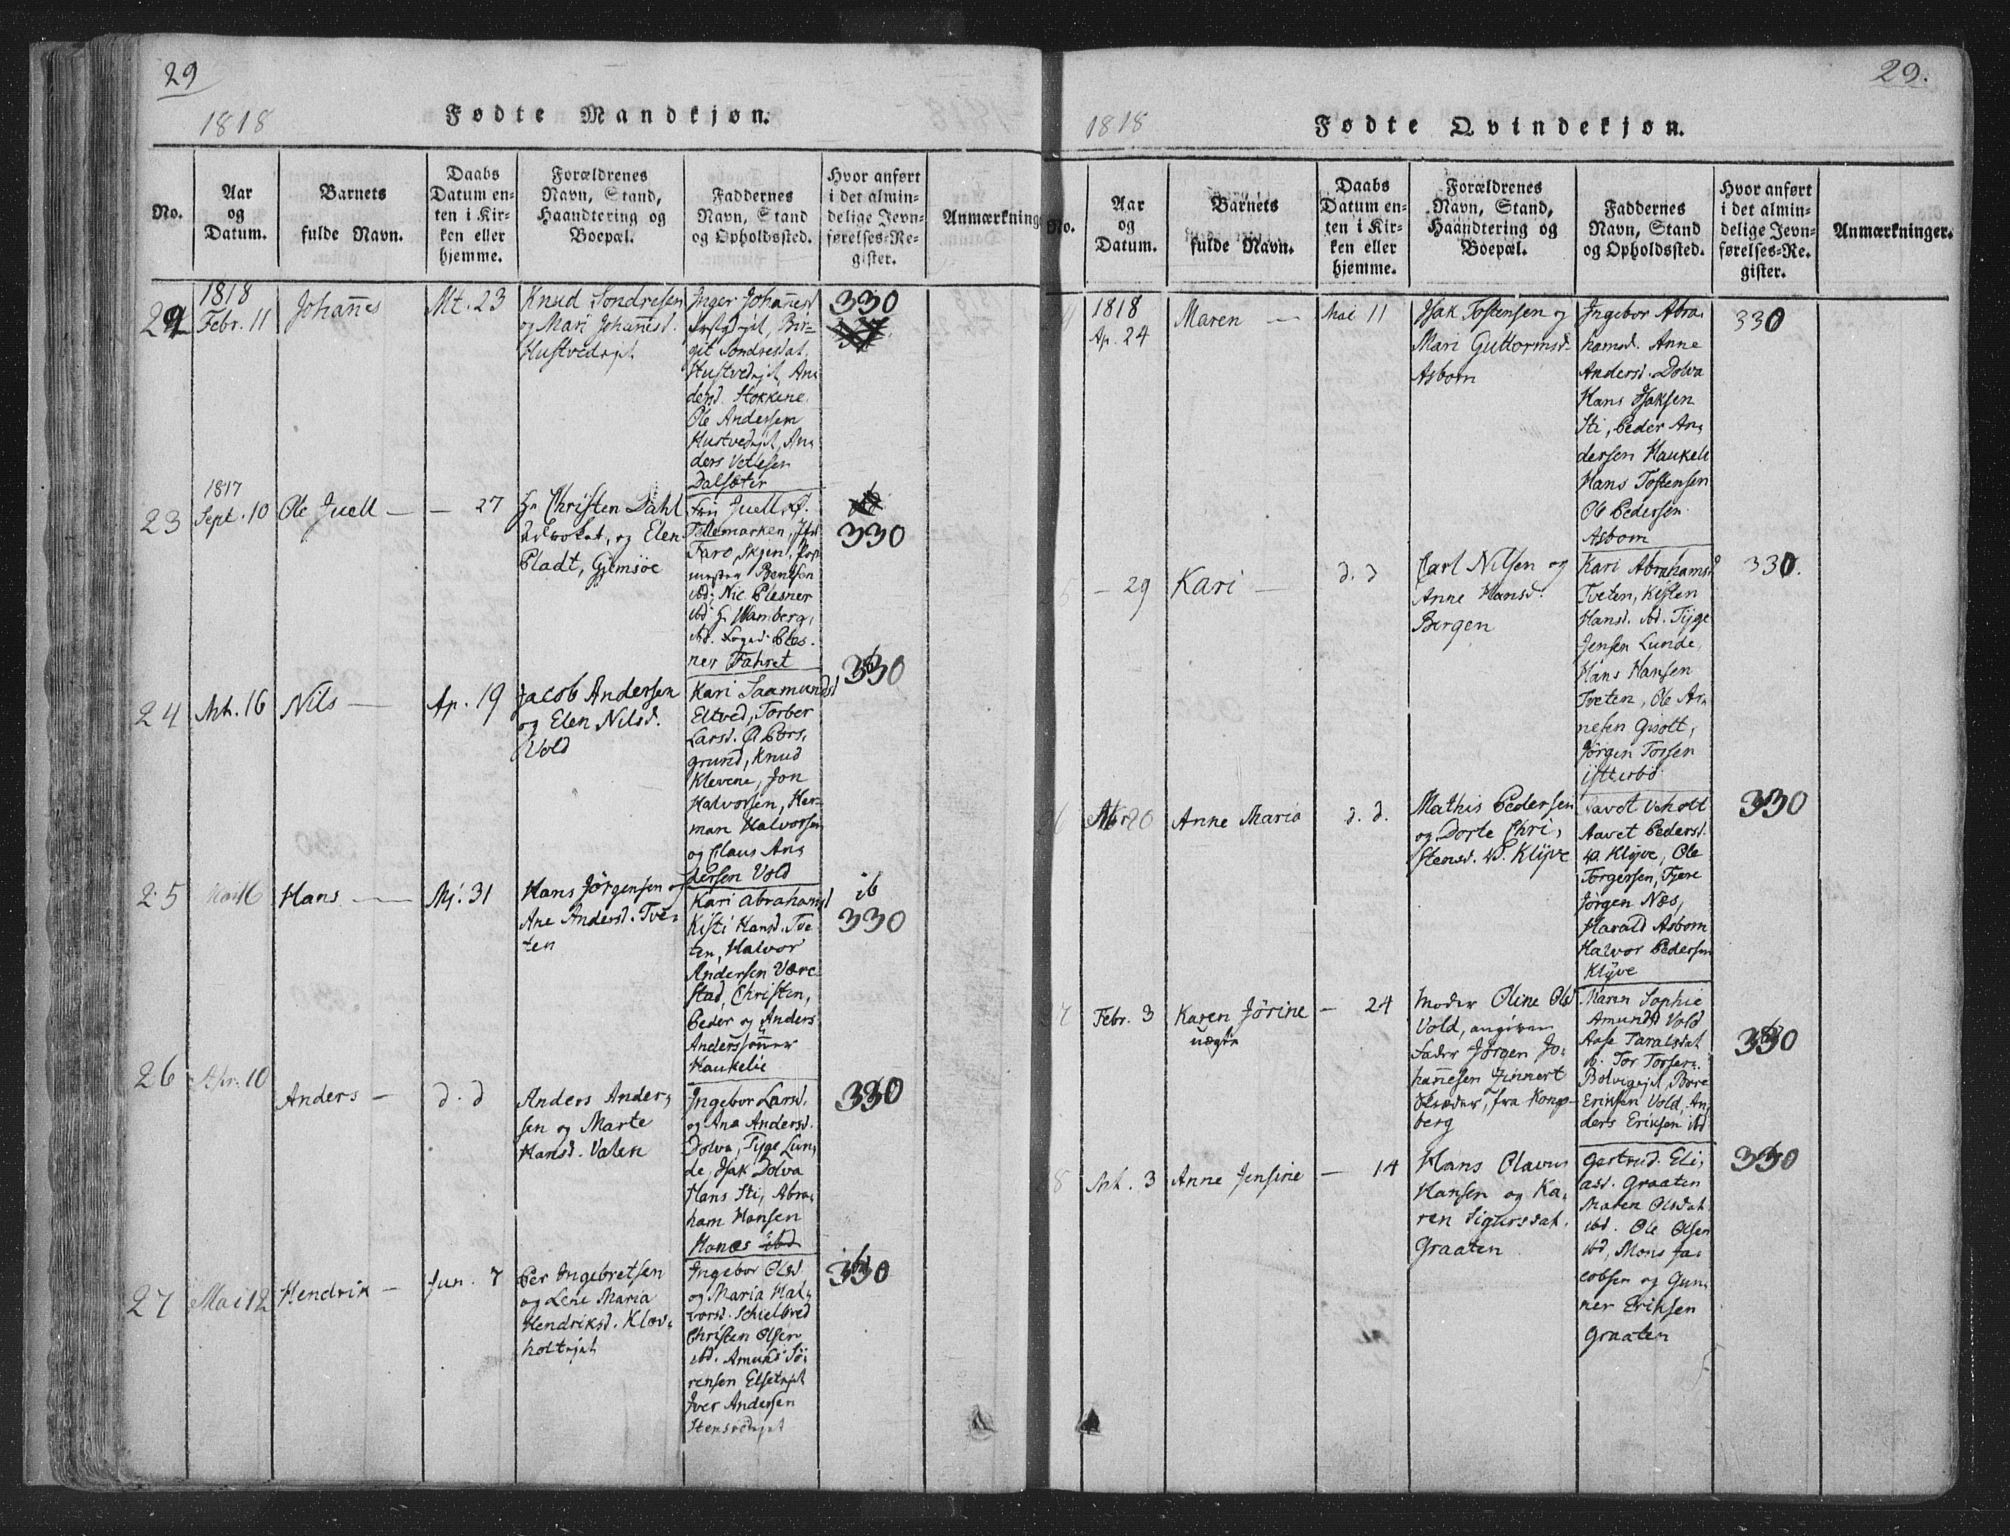 29
1818
Fødte Mandkjøn.
No.
Aar
og
Datum.
Barnets
fulde Navn.
Daabs
Datum en-
ten i Kir-
ken eller
hjemme.
Forældrenes
Navn, Stand,
Haandtering og
Boepæl.
Faddernes
Navn, Stand
og Opholdssted.
Hvor anført
i det almin-
delige Jevn-
førelses-Re-
gister.
Anmærkning
1818
Febr. 11
Johannes
Mt. 23
Knud Sondresen
og Mari Johannesd.
Hustvedejet
Inger Johannesd
git Sondresdat.
Hustvedejet, An-
dersd. Stokkene
Ole Andersen
Hustvedejet, An-
ders Vetlesen
Dalsæter
330
23
1817
Sept. 10
Ole Juell
27
Hr Christen Dahl
og Elen
Pladt, Gjemsöe
Juell
Tellemarken
mester Bentsen
ibd. Nic. Plesner
ibd
Foged Ples-
ner Fahret
330
24
Mt. 16
Nils
Ap. 19
Jacob Andersen
og Elen Nilsd.
Vold
Kari Saamundsd
Eltved, Torber
Larsd. Pors-
grund, Knud
Klevene, Jon
Halvorsen, Her-
man Halvorsen
og Claus An-
dersen Vold
330
25
Hans
Mj. 31
Hans Jörgensen og
Ane Andersd. Tve-
ten
Kari Abrahamsd
Kisti Hansd. Tve-
ten, Halvor
Andersen Være-
stad, Christen,
Peder og Anders
Anderssönner
Haukelie
ib
330
26
Apr. 10
Anders
d. d
Anders Ander-
sen og Marte
Hansd. Valen
Ingebor Larsd.
og Ana Andersd.
Dolva, Tyge Lun-
de, Isak Dolva
Hans Sti, Abra-
ham Hansen
Hanes ibd
330
27
Mai 12
Hendrik
Jun. 7
Per Ingebretsen
og Lene Maria
Hendriksd. Klov-
holtejet
Ingebor Olsd
og Maria Hal-
vorsd. Schielbred
Christen Olsen
ibd. Amund Sö-
rensen Elsetejet
Iver Andersen
Stensrudejet
330
29.
1818
Fødte Qvindekjøn.
No.
Aar
og
Datum.
Barnets
fulde Navn.
Daabs
Datum en-
ten i Kir-
ken eller
hjemme.
Forældrenes
Navn, Stand,
Haandtering og
Boepæl.
Faddernes
Navn, Stand
og Opholdssted.
Hvor anført
i det almin-
delige Jevn-
førelses-Re-
gister.
Anmærkninger.
1818
Ap. 24
Maren
Mai 11
Isak Tostensen og
Mari Guttormsd
Asbom
Ingebor Abra-
hamsd. Anne
Andersd. Dolva
Hans Isaksen
Sti, Peder An-
dersen Haukeli
Hans Tostensen
Ole Pedersen
Asbom
330
29
Kari
d. d
Carl Nilsen og
Anne Hansd.
Borgen
Kari Abrahamsd
Tveten, Kisten
Hansd. ibd. Tyge
Jensen Lunde,
Hans Hansen
Tveten, Ole Ar-
nesen Gisolt,
Jörgen Torsen
330.
20
Anne Maria
d. d.
Mathis Pedersen
og Dorte Chri-
stensd. Klyve
Aavet Pedersd.
Klyve, Ole
Torgersen, Fjære
Jörgen Næs,
Harald Asbom
Halvor Pedersen
Klyve
330
Febr. 3
Karen Jörine
uægte
24
Moder Oline Olsd
Vold, angiven
Fader Jörgen Jo-
hannesen Finnert
Skræder, fra Kongs-
berg
Maren Sophie
Amundsd Vold
Aase Taralsdat
ib. Tor Torsen
Bolvigejet, Bore
Eriksen Vold, An-
ders Eriksen ibd
330
Mt. 3
Anne Jensine
14
Hans Olavus
Hansen og Ka-
ren Sigursdat.
Graaten
Gertrud Eli-
asd. Graaten
Maren Olsdat
ibd. Ole Olsen
ibd, Mons Ja-
cobsen og Gun-
ner Eriksen
Graaten
330